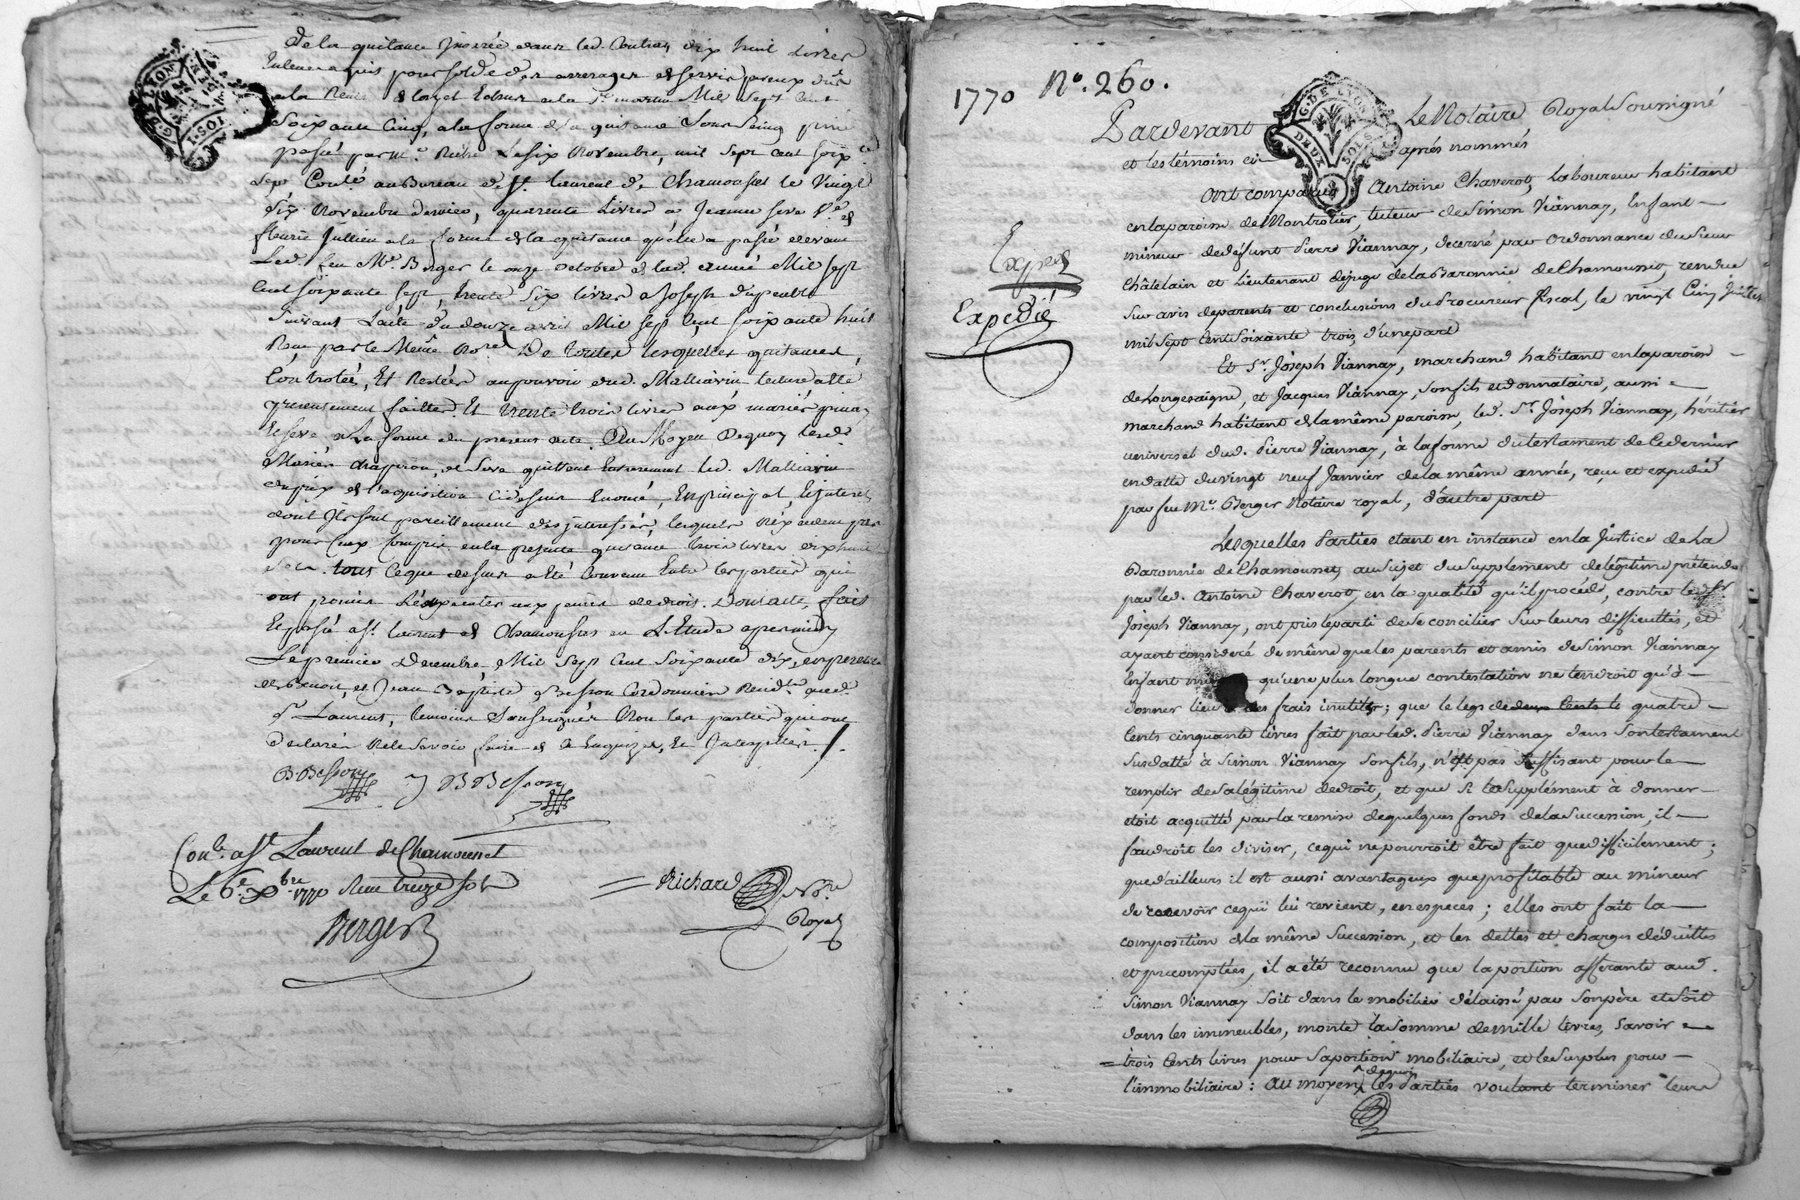 de la quitance inserée dans led. Contrat dix huit livres
pour solde des arrerages
St martin Mil sept cent
Soixante Cinq, a la forme de la quitance Sous Seing privé
passé par Me le six Novembre, mil sept cent soixte
sept Conlé au Bureau de St. Laurent de Chamousset le Vingt
Six Novembre dernier, quarente Livres a Jeanne Seve Ve de
fleurie Jullien a la forme de la quitance qu'elle a passé devant
Led. feu Me. Berger le onze octobre de lad. année Mil sept
Cent soixante sept, trente six livres a Joseph
Suivant L'acte du douze avril Mil sept Cent soixante huit
Reçu par le Meme Nore. De toutes lesquelles quitances,
Controlée, Et Restées au pouvoir dud. Mathevin lecture a été
faittes. Et trente trois livres aux mariés
Et Seve a La forme du present acte. Au Moyen Dequoy lesd.
Mariés et Seve quittent Entierement led. Mathevin
du prix de l'acquisition cidessus Enoncé, En principal, Et interets
dont Ils sont pareillement
pour Ceux Compris en la presente quitance trois livres dix huit
sols. tout Ceque dessus a été Convenu Entre les parties qui
ont promis Dont acte, fait
Et passé a St. Laurent de Chamousset en L'Etude apres midy
Le premier Decembre Mil Sept Cent Soixante dix, en presence
de Benoit, et Jean Baptiste Besson Cordonnier Resid.ts aud.
St Laurent, temoins Soussignés Non les parties qui ont
declaré Ne le Savoir faire de Ce Enquizes, Et Interpellées./.
B Besson J B Besson
Conlé. a St. Laurent de Chamousset
Le 6e. Xbre 1770 Reçu treize sols
Richard Nore. Royal
Berger
1770 No. 260.
G. DE LYON
DEUX SOLS
Pardevant Le Notaire Royal Soussigné
et les témoins ci après nommés
Ont comparu Antoine Chaverot, laboureur habitant
en la paroisse de Montrotier, tuteur de Simon Viannay, Enfant
mineur de défunt Pierre Viannay, décerné par Ordonnance du Sieur
Exped
Châtelain et Lieutenant de juge de la Baronnie de Chamousset, rendue
Expedié
Sur avis de parents et conclusions du Procureur fiscal, le vingt Cinq Juillet
mil Sept Cent Soixante trois d'une part
Et Sr. Joseph Viannay, marchand habitant en la paroisse
de Longesaigne, et Jacques Viannay, Son fils et donnataire, aussi
marchand habitant de la même paroisse, led. Sr. Joseph Viannay, héritier
universel dud. Pierre Viannay, à la forme du testament de Ce dernier
en datte du vingt neuf Janvier de la même année, reçu et expedié
par feu Me. Berger Notaire royal, d'autre part
Lesquelles Parties etant en instance en la Justice de la
Baronnie de Chamousset, au Sujet du Supplement de légitime prétendu
par led. Antoine Chaverot, en la qualité qu'il procéde, contre led. Sr
Joseph Viannay, ont pris le parti de Se concilier Sur leurs difficultés, et
ayant consideré de même que les parents et amis de Simon Viannay
Enfant qu'une plus longue contestation ne tendroit qu'à
donner lieu des frais inutils; que le legs de deux Cents le quatre
Cents cinquante livres fait par led. Pierre Viannay dans Son testament
Susdatté à Simon Viannay Son fils, n'est pas Suffisant pour le
remplir de Sa légitime de droit, et que Si le Supplément à donner
etoit acquitté par la remise de quelques fonds de la Succession, il
faudroit les diviser, ce qui ne pourroit être fait que difficilement;
que d'ailleurs il est aussi avantageux que profitable au mineur
de recevoir ce qui lui revient, en espéces; elles ont fait la
composition de la même Succession, et les dettes et charges déduittes
et precomptées, il a été reconnu que la portion afferante aud.
Simon Viannay Soit dans le mobilier délaissé par Son père et Soit
dans les immeubles, monte la Somme de mille livres, Savoir
trois Cents livres pour Sa portion mobiliaire, et le Surplus pour
l'immobiliaire: au moyen dequoi les Parties voulant terminer leurs